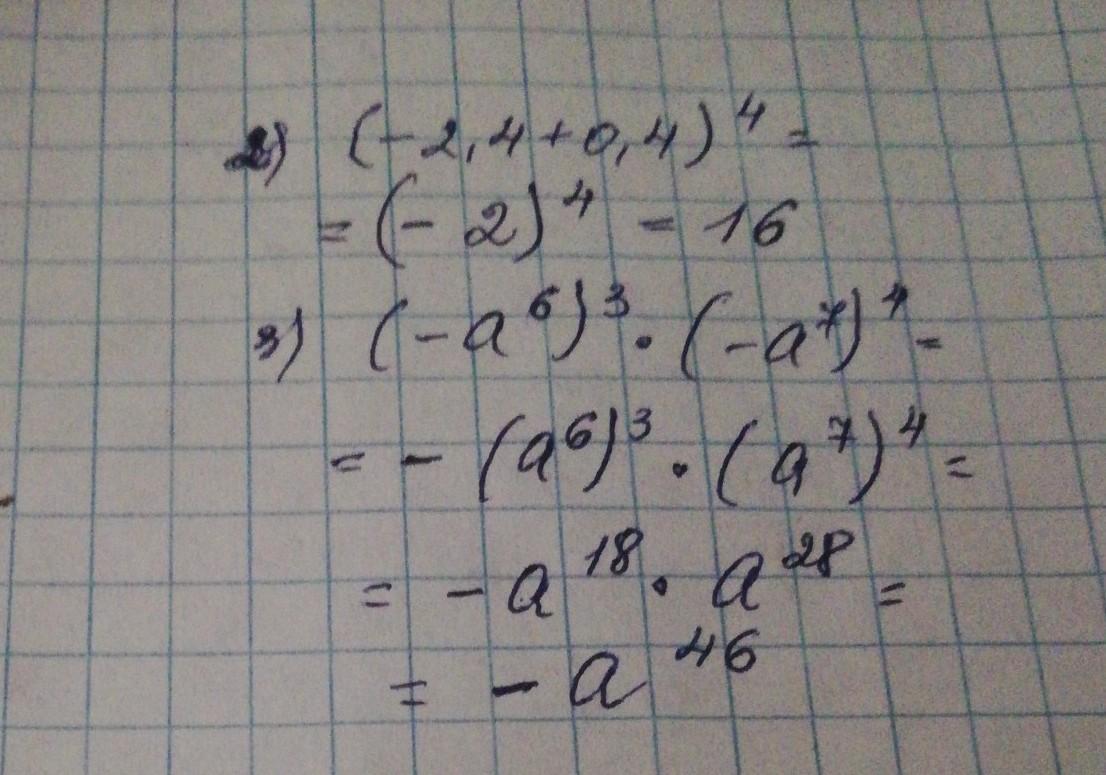 2) (-2,4+0,4)⁴ =
= (- 2)⁴ = 16
3) (-a⁶)³ · (-a⁷)⁴ =
= - (a⁶)³ · (a⁷)⁴ =
= - a¹⁸ · a²⁸ =
= - a⁴⁶